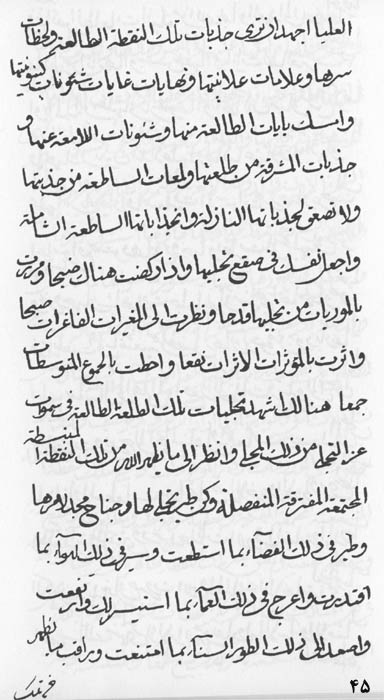 العليا اجهد ان ترى جذبات تلك النقطة الطالعة ولحظات
سرها وعلامات علانيتها ونهايات غايات شئونات كينونيتها
واسلك بايات الطالعة منها وشئونات اللامعة عنها و
جذبات المشرقة من طلعتها ولمعات الساطعة من جذبتها
ولا تصعق لجذباتها النازلة وانجذاباتها الساطعة الشاملة
واجعل نفسك في صقع تجليها واذا ركضت هناك ضبحا ووريت
بالموريات من تجليها قدحا ونظرت الى المغيرات الفاغرات صبحا
واثرت بالمؤثرات الاثرات نقعا ووسطت بالجموع المتوسطات
جمعا هنالك اشهد تجليات تلك الطلعة الطالعة في سموات
عز التجلي من ذلك المجلى وانظر الى ما يظهر الله من تلك النقطة المنبسطة
المجتمعة المفترقة المنفصلة وكن طير تجلي لها وجناح مجد لامرها
وطر في ذلك الفضاء بما استطعت وسر في ذلك الهواء بما
اقتدرت واعرج في ذلك العماء بما استيسر لك وارتفعت
واصعد الى ذلك الطور السناء بما امتنعت وراقب ما يظهر
٤٥